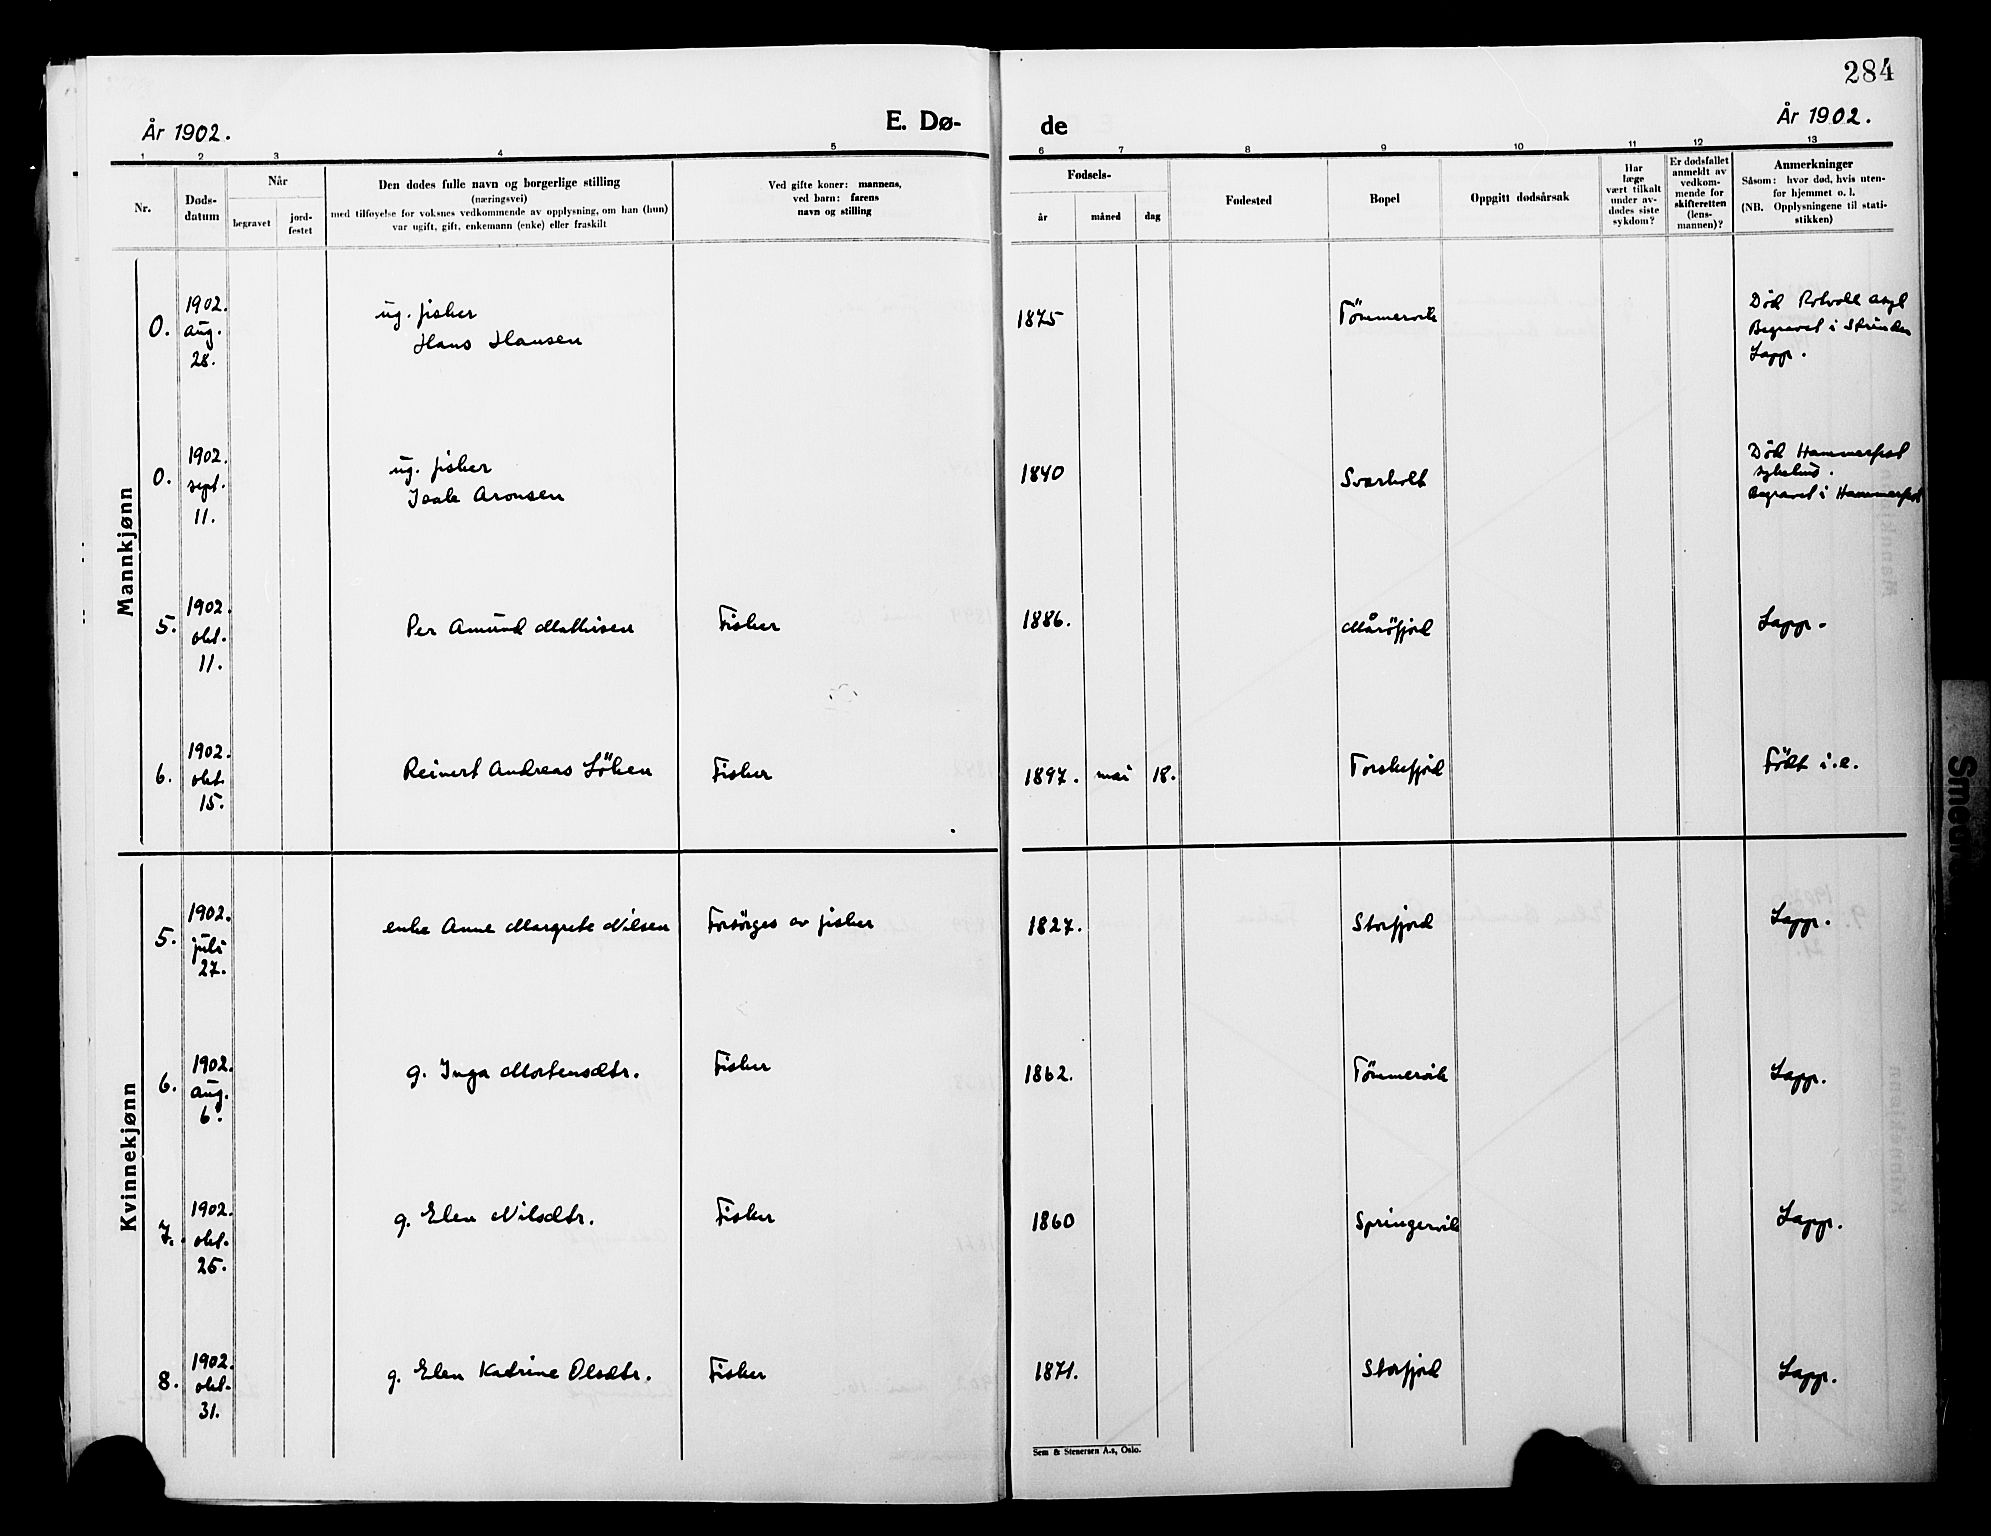 284
År 1902.
E. Dø-
de
År 1902.
1 2 3 4 5 6 7 8 9 10 11 12 13
Nr.
Døds-
datum
Når
begravet
jord-
festet
Den dødes fulle navn og borgerlige stilling
(næringsvei)
med tilføyelse for voksnes vedkommende av opplysning, om han (hun)
var ugift, gift, enkemann (enke) eller fraskilt
Ved gifte koner: mannens,
ved barn: farens
navn og stilling
Fødsels-
år
måned
dag
Fødested
Bopel
Oppgitt dødsårsak
Har
læge
vært tilkalt
under av-
dødes siste
sykdom?
Er dødsfallet
anmeldt av
vedkom-
mende for
skifteretten
(lens-
mannen)?
Anmerkninger
Såsom: hvor død, hvis uten-
for hjemmet o. l.
(NB. Opplysningene til stati-
stikken)
Mannkjønn
0.
1902.
aug.
28.
ug. fisker
Hans Hansen
1875
Tömmervik
Död Rotvoll asyl
Begravet i Strinden
Lapp.
0.
1902.
sept.
11.
ug. fisker
Isak Aronsen
1840
Sværholt
Död Hammerfest
sykehus.
Begravet i Hammerfest
5.
1902.
okt.
11.
Per Amund Mathisen
Fisker
1886.
Mårøfjord
Lapp.
6.
1902.
okt.
15.
Reinert Andreas Löken
Fisker
1897. mai 18.
Torskefjord
Födt i.e.
Kvinnekjønn
5.
1902.
juli
27.
enke Anne Margrete Nilsen
Forsörges av fisker
1827.
Storfjord
Lapp.
6.
1902.
aug.
6.
g. Inga Mortensdtr.
Fisker
1862.
Tömmervik
Lapp.
7.
1902.
okt.
25.
g. Elen Nilsdtr.
Fisker
1860
Springervik
Lapp.
8.
1902.
okt.
31.
g. Elen Katrine Olsdtr.
Fisker
1871.
Storfjord
Lapp.
Sem & Stenersen A.s, Oslo.